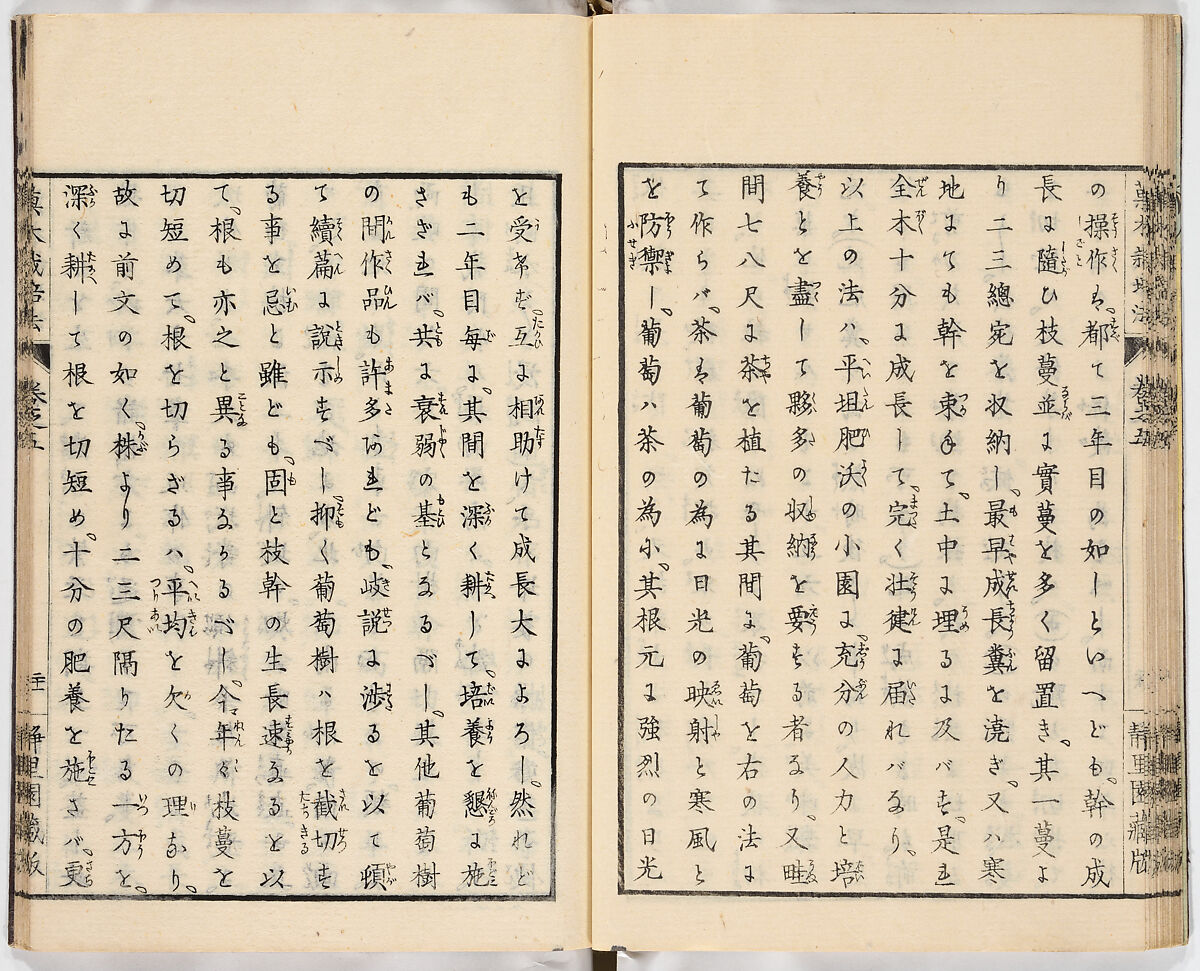 の操作は、都て三年目の如しといへども、幹の成
長に隨ひ枝蔓並に實蔓を多く留置き、其一蔓よ
り二三總宛を収納し、最早成長糞を澆ぎ、又ハ寒
地にても幹を束ねて、土中に埋るに及バず、是れ
全木十分に成長して、完く壮健に届れバなり、
以上の法ハ、平坦肥沃の小園に、充分の人力と培
養とを盡して夥多の収納を要する者なり、又畦
間七八尺に茶を植たる其間に、葡萄を右の法に
て作らバ、茶は葡萄の為に日光の映射と寒風と
を防禦し、葡萄ハ茶の為に、其根元に強烈の日光
を受けず、互に相助けて成長大によろし、然れど
も二年目毎に、其間を深く耕して、培養を懇に施
さゞれバ、共に衰弱の基となるべし、其他葡萄樹
の間作品も許多あれども、岐説に渉るを以て頓
て續篇に説示すべし、抑〻葡萄樹ハ根を截切す
る事を忌と雖ども、固と枝幹の生長速なるを以
て、根も亦之と異る事なかるべし、今年々枝蔓を
切短めて、根を切らざるハ、平均を欠くの理なり、
故に前文の如く、株より二三尺隔りたる一方を、
深く耕して根を切短め、十分の肥養を施さバ、更
菓木栽培法
巻之五
静里園蔵版